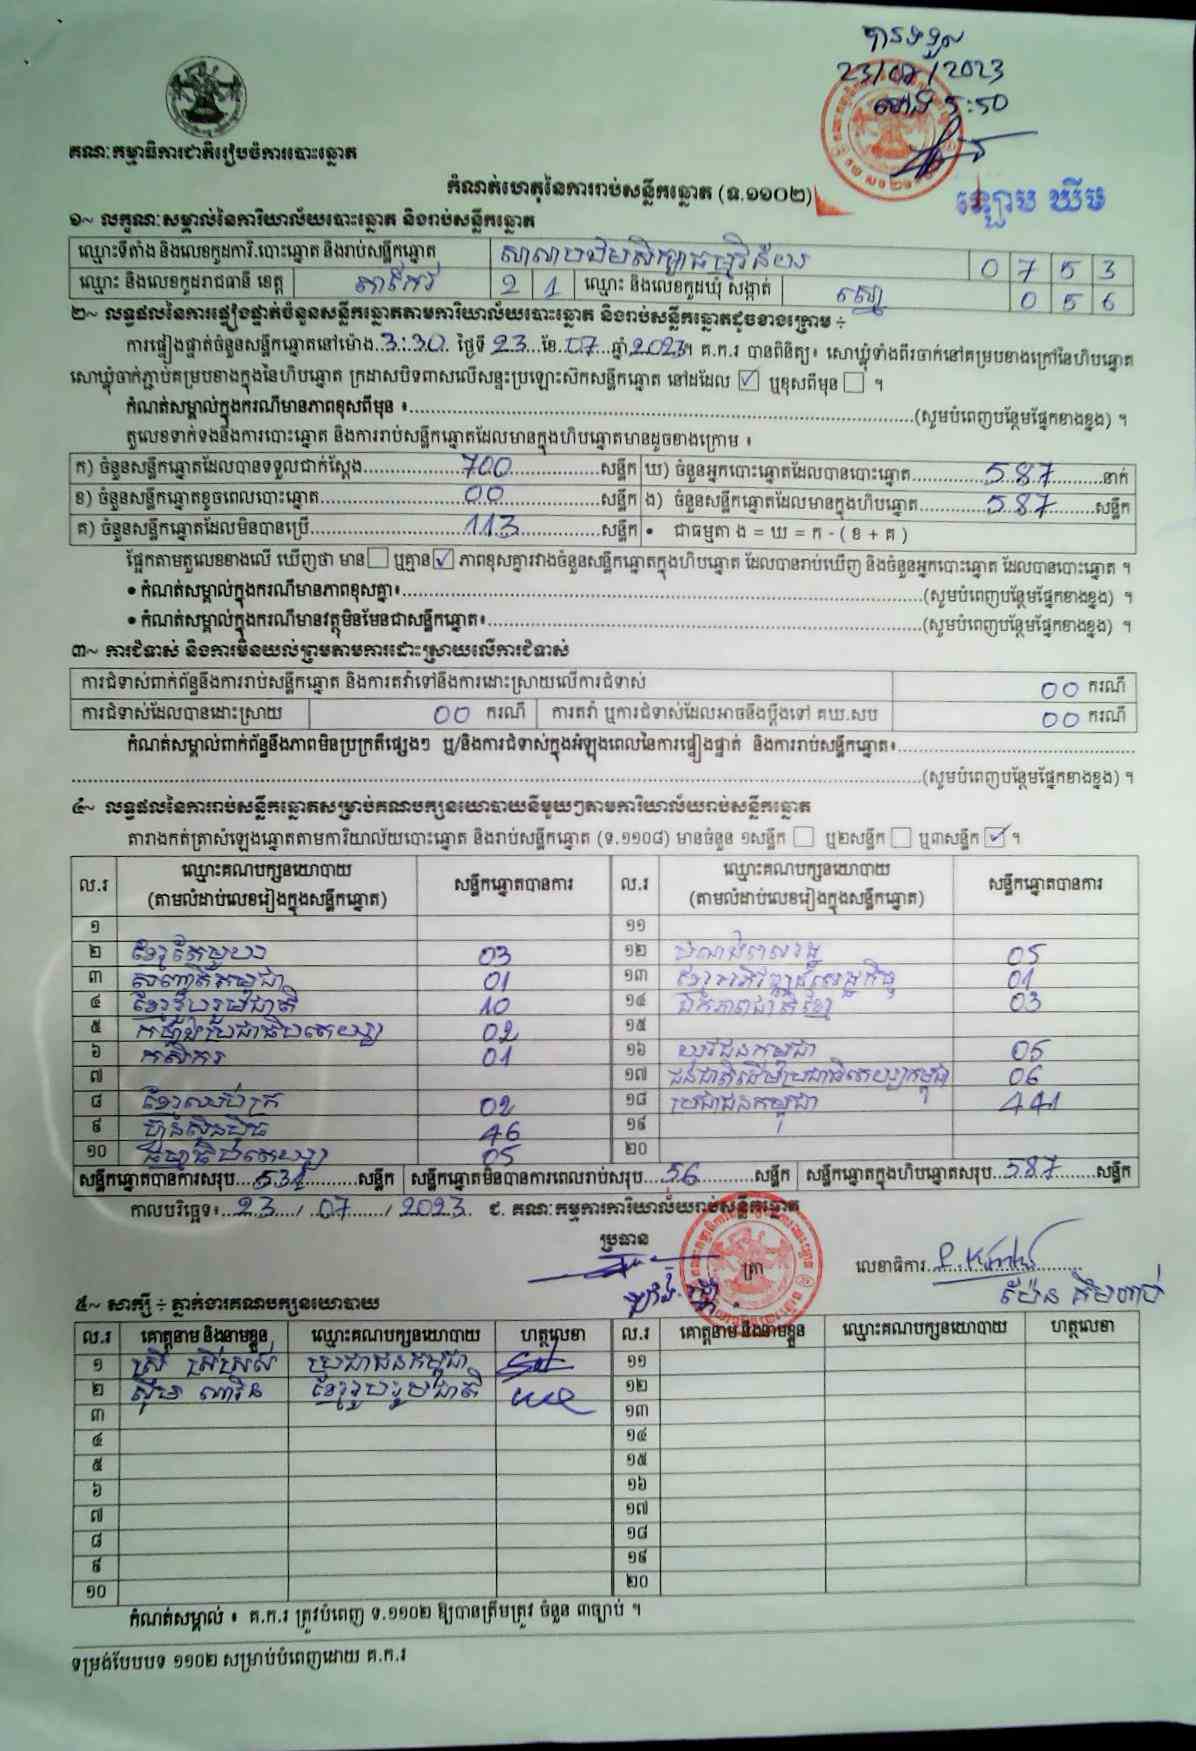 បានទទួល
23/07/2023
ម៉ោង 5:50
គណៈកម្មាធិការជាតិរៀបចំការបោះឆ្នោត
កំណត់ហេតុនៃការរាប់សន្លឹកឆ្នោត (ទ.១១០២)
១~ លក្ខណៈសម្គាល់នៃការិយាល័យបោះឆ្នោត និងរាប់សន្លឹកឆ្នោត
ឈ្មោះទីតាំង និងលេខកូដការិ.បោះឆ្នោត និងរាប់សន្លឹកឆ្នោត សាលាបឋមសិក្សា 0 7 5 3
ឈ្មោះ និងលេខកូដរាជធានី ខេត្ត តាកែវ 2 1 ឈ្មោះ និងលេខកូដឃុំ សង្កាត់ 0 5 6
២~ លទ្ធផលនៃការផ្ទៀងផ្ទាត់ចំនួនសន្លឹកឆ្នោតតាមការិយាល័យបោះឆ្នោត និងរាប់សន្លឹកឆ្នោតដូចខាងក្រោម ÷
ការផ្ទៀងផ្ទាត់ចំនួនសន្លឹកឆ្នោតនៅម៉ោង 3:30 ថ្ងៃទី 23 ខែ 07 ឆ្នាំ 2023 ។ គ.ក.រ បានពិនិត្យ៖ សោឃ្លុំទាំងពីរចាក់នៅគម្របខាងក្រៅនៃហិបឆ្នោត
សោឃ្លុំចាក់ភ្ជាប់គម្របខាងក្នុងនៃហិបឆ្នោត ក្រដាសបិទពាសលើសន្ទះប្រឡោះស៊កសន្លឹកឆ្នោត នៅដដែល ☑ ឬខុសពីមុន ☐ ។
កំណត់សម្គាល់ក្នុងករណីមានភាពខុសពីមុន ៖ (សូមបំពេញបន្ថែមផ្នែកខាងខ្នង) ។
តួលេខទាក់ទងនឹងការបោះឆ្នោត និងការរាប់សន្លឹកឆ្នោតដែលមានក្នុងហិបឆ្នោតមានដូចខាងក្រោម ៖
ក) ចំនួនសន្លឹកឆ្នោតដែលបានទទួលជាក់ស្តែង 700 សន្លឹក ឃ) ចំនួនអ្នកបោះឆ្នោតដែលបានបោះឆ្នោត 587 នាក់
ខ) ចំនួនសន្លឹកឆ្នោតខូចពេលបោះឆ្នោត 00 សន្លឹក ង) ចំនួនសន្លឹកឆ្នោតដែលមានក្នុងហិបឆ្នោត 587 សន្លឹក
គ) ចំនួនសន្លឹកឆ្នោតដែលមិនបានប្រើ 113 សន្លឹក • ជាធម្មតា ង = ឃ = ក - ( ខ + គ )
ផ្អែកតាមតួលេខខាងលើ ឃើញថា មាន ☐ ឬគ្មាន ☑ ភាពខុសគ្នារវាងចំនួនសន្លឹកឆ្នោតក្នុងហិបឆ្នោត ដែលបានរាប់ឃើញ និងចំនួនអ្នកបោះឆ្នោត ដែលបានបោះឆ្នោត ។
• កំណត់សម្គាល់ក្នុងករណីមានភាពខុសគ្នា៖ (សូមបំពេញបន្ថែមផ្នែកខាងខ្នង) ។
• កំណត់សម្គាល់ក្នុងករណីមានវត្ថុមិនមែនជាសន្លឹកឆ្នោត៖ (សូមបំពេញបន្ថែមផ្នែកខាងខ្នង) ។
៣~ ការជំទាស់ និងការមិនយល់ព្រមតាមការដោះស្រាយលើការជំទាស់
ការជំទាស់ពាក់ព័ន្ធនឹងការរាប់សន្លឹកឆ្នោត និងការតវ៉ាទៅនឹងការដោះស្រាយលើការជំទាស់ 00 ករណី
ការជំទាស់ដែលបានដោះស្រាយ 00 ករណី ការតវ៉ា ឬការជំទាស់ដែលអាចនឹងប្តឹងទៅ គឃ.សប 00 ករណី
កំណត់សម្គាល់ពាក់ព័ន្ធនឹងភាពមិនប្រក្រតីផ្សេងៗ ឬ/និងការជំទាស់ក្នុងអំឡុងពេលនៃការផ្ទៀងផ្ទាត់ និងការរាប់សន្លឹកឆ្នោត៖
(សូមបំពេញបន្ថែមផ្នែកខាងខ្នង) ។
៤~ លទ្ធផលនៃការរាប់សន្លឹកឆ្នោតសម្រាប់គណបក្សនយោបាយនីមួយៗតាមការិយាល័យរាប់សន្លឹកឆ្នោត
តារាងកត់ត្រាសំឡេងឆ្នោតតាមការិយាល័យបោះឆ្នោត និងរាប់សន្លឹកឆ្នោត (ទ.១១០៨) មានចំនួន ១សន្លឹក ☐ ឬ២សន្លឹក ☐ ឬ៣សន្លឹក ☑ ។
ល.រ ឈ្មោះគណបក្សនយោបាយ (តាមលំដាប់លេខរៀងក្នុងសន្លឹកឆ្នោត) សន្លឹកឆ្នោតបានការ ល.រ ឈ្មោះគណបក្សនយោបាយ (តាមលំដាប់លេខរៀងក្នុងសន្លឹកឆ្នោត) សន្លឹកឆ្នោតបានការ
១ ១១
២ ខ្មែរតែមួយ 03 ១២ 05
៣ សញ្ជាតិកម្ពុជា 01 ១៣ ខ្មែរអភិវឌ្ឍន៍សេដ្ឋកិច្ច 01
៤ ខ្មែររួបរួមជាតិ 10 ១៤ ឯកភាពជាតិខ្មែរ 03
៥ កម្លាំងប្រជាធិបតេយ្យ 02 ១៥
៦ កសិករ 01 ១៦ យុវជនកម្ពុជា 05
៧ ១៧ ជនជាតិដើមប្រជាធិបតេយ្យកម្ពុជា 06
៨ ខ្មែរឈប់ក្រ 02 ១៨ ប្រជាជនកម្ពុជា 441
៩ ហ៊្វុនស៊ិនប៉ិច 46 ១៩
១០ ធម្មាធិបតេយ្យ 05 ២០
សន្លឹកឆ្នោតបានការសរុប 531 សន្លឹក សន្លឹកឆ្នោតមិនបានការពេលរាប់សរុប 56 សន្លឹក សន្លឹកឆ្នោតក្នុងហិបឆ្នោតសរុប 587 សន្លឹក
កាលបរិច្ឆេទ៖ 23 / 07 / 2023 ជ. គណៈកម្មការការិយាល័យរាប់សន្លឹកឆ្នោត
ប្រធាន ត្រា លេខាធិការ
៥~ សាក្សី ÷ ភ្នាក់ងារគណបក្សនយោបាយ
ល.រ គោត្តនាម និងនាមខ្លួន ឈ្មោះគណបក្សនយោបាយ ហត្ថលេខា ល.រ គោត្តនាម និងនាមខ្លួន ឈ្មោះគណបក្សនយោបាយ ហត្ថលេខា
១ ប្រជាជនកម្ពុជា ១១
២ ខ្មែររួបរួមជាតិ ១២
៣ ១៣
៤ ១៤
៥ ១៥
៦ ១៦
៧ ១៧
៨ ១៨
៩ ១៩
១០ ២០
កំណត់សម្គាល់ ៖ គ.ក.រ ត្រូវបំពេញ ទ.១១០២ ឱ្យបានត្រឹមត្រូវ ចំនួន ៣ច្បាប់ ។
ទម្រង់បែបបទ ១១០២ សម្រាប់បំពេញដោយ គ.ក.រ